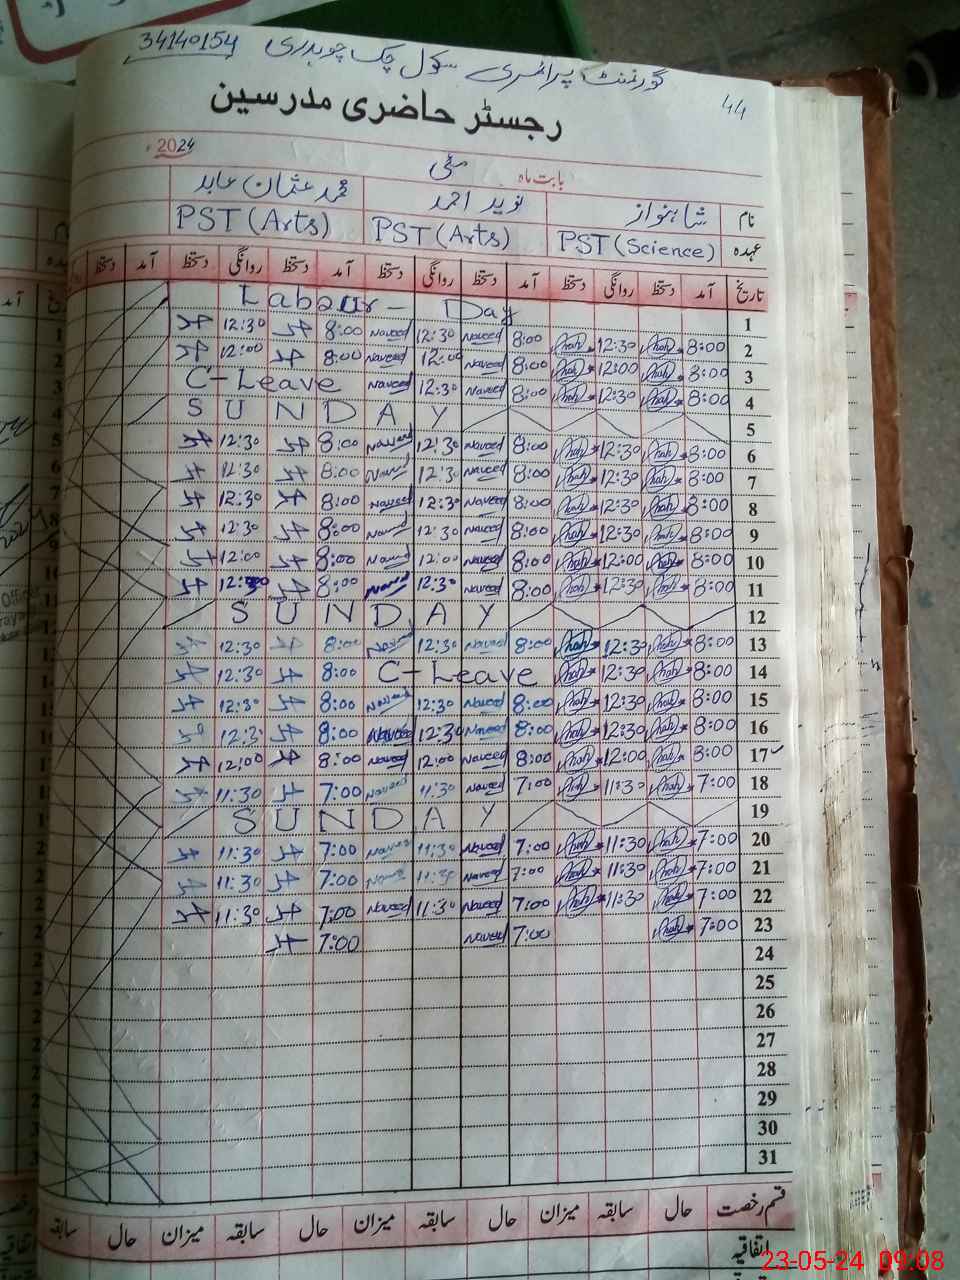 گورنمنٹ پرائمری سکول چک چوہدری 34140154
44
رجسٹر حاضری مدرسین
بابت ماہ مئی 2024ء
نام شاہنواز نوید احمد محمد عثمان عابد
عہدہ PST (Science) PST (Arts) PST (Arts)
تاریخ آمد دستخط روانگی دستخط آمد دستخط روانگی دستخط آمد دستخط روانگی دستخط آمد دستخط
1 Labour - Day
2 8:00 Shah 12:30 Shah 8:00 Naveed 12:30 Naveed 8:00 12:30
3 8:00 Shah 12:00 Shah 8:00 Naveed 12:00 Naveed 8:00 12:00
4 8:00 Shah 12:30 Shah 8:00 Naveed 12:30 Naveed C-Leave
5 SUNDAY
6 8:00 Shah 12:30 Shah 8:00 Naveed 12:30 Naveed 8:00 12:30
7 8:00 Shah 12:30 Shah 8:00 Naveed 12:30 Naveed 8:00 12:30
8 8:00 Shah 12:30 Shah 8:00 Naveed 12:30 Naveed 8:00 12:30
9 8:00 Shah 12:30 Shah 8:00 Naveed 12:30 Naveed 8:00 12:30
10 8:00 Shah 12:00 Shah 8:00 Naveed 12:00 Naveed 8:00 12:00
11 8:00 Shah 12:30 Shah 8:00 Naveed 12:30 Naveed 8:00 12:30
12 SUNDAY
13 8:00 Shah 12:30 Shah 8:00 Naveed 12:30 Naveed 8:00 12:30
14 8:00 Shah 12:30 Shah C-Leave 8:00 12:30
15 8:00 Shah 12:30 Shah 8:00 Naveed 12:30 Naveed 8:00 12:30
16 8:00 Shah 12:30 Shah 8:00 Naveed 12:30 Naveed 8:00 12:30
17 8:00 Shah 12:00 Shah 8:00 Naveed 12:00 Naveed 8:00 12:00
18 7:00 Shah 11:30 Shah 7:00 Naveed 11:30 Naveed 7:00 11:30
19 SUNDAY
20 7:00 Shah 11:30 Shah 7:00 Naveed 11:30 Naveed 7:00 11:30
21 7:00 Shah 11:30 Shah 7:00 Naveed 11:30 Naveed 7:00 11:30
22 7:00 Shah 11:30 Shah 7:00 Naveed 11:30 Naveed 7:00 11:30
23 7:00 Shah 7:00 Naveed 7:00
24
25
26
27
28
29
30
31
قسم رخصت حال سابقہ میزان حال سابقہ میزان حال سابقہ میزان حال سابقہ
اتفاقیہ
23-05-24 09:08